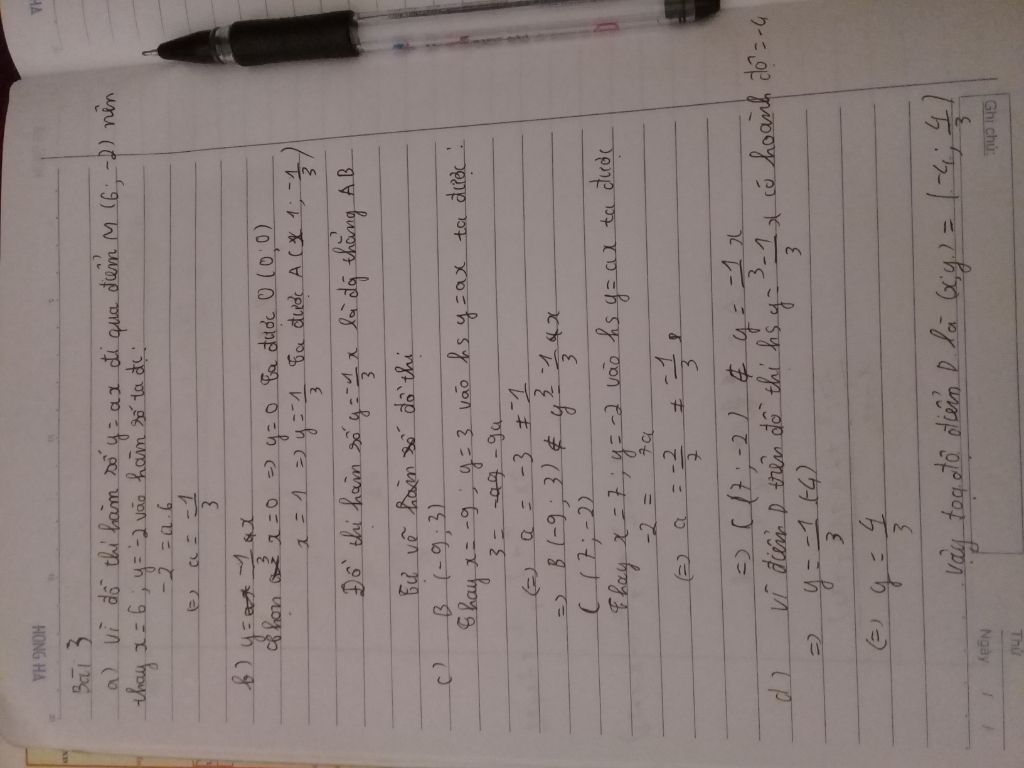 HONG HA
Thứ
Ngày / /
Ghi chú:
Bài 3
a) Vì đồ thị hàm số y = ax đi qua điểm M (6; -2) nên
thay x = 6 ; y = -2 vào hàm số ta đi:
-2 = a 6
(=) a = -1/3
b) y = -1/3 x
chọn x = 0 => y = 0 Ta được O (0; 0)
x = 1 => y = -1/3 Ta được A (1; -1/3)
Đồ thị hàm số y = -1/3 x là đg thẳng AB
Tự vẽ hàm số đồ thị
c) B (-9; 3)
Thay x = -9 ; y = 3 vào hs y = ax ta được:
3 = -9a
(=) a = -3 ≠ -1/3
=> B (-9; 3) ∉ y = -1/3 x
C (7; -2)
Thay x = 7 ; y = -2 vào hs y = ax ta được
-2 = 7a
(=) a = -2/7 ≠ -1/3
=> C (7; -2) ∉ y = -1/3 x
d) Vì điểm D trên đồ thị hs y = -1/3 x có hoành độ = -4
=> y = -1/3 (-4)
(=) y = 4/3
Vậy tọa độ điểm D là (x; y) = (-4; 4/3)